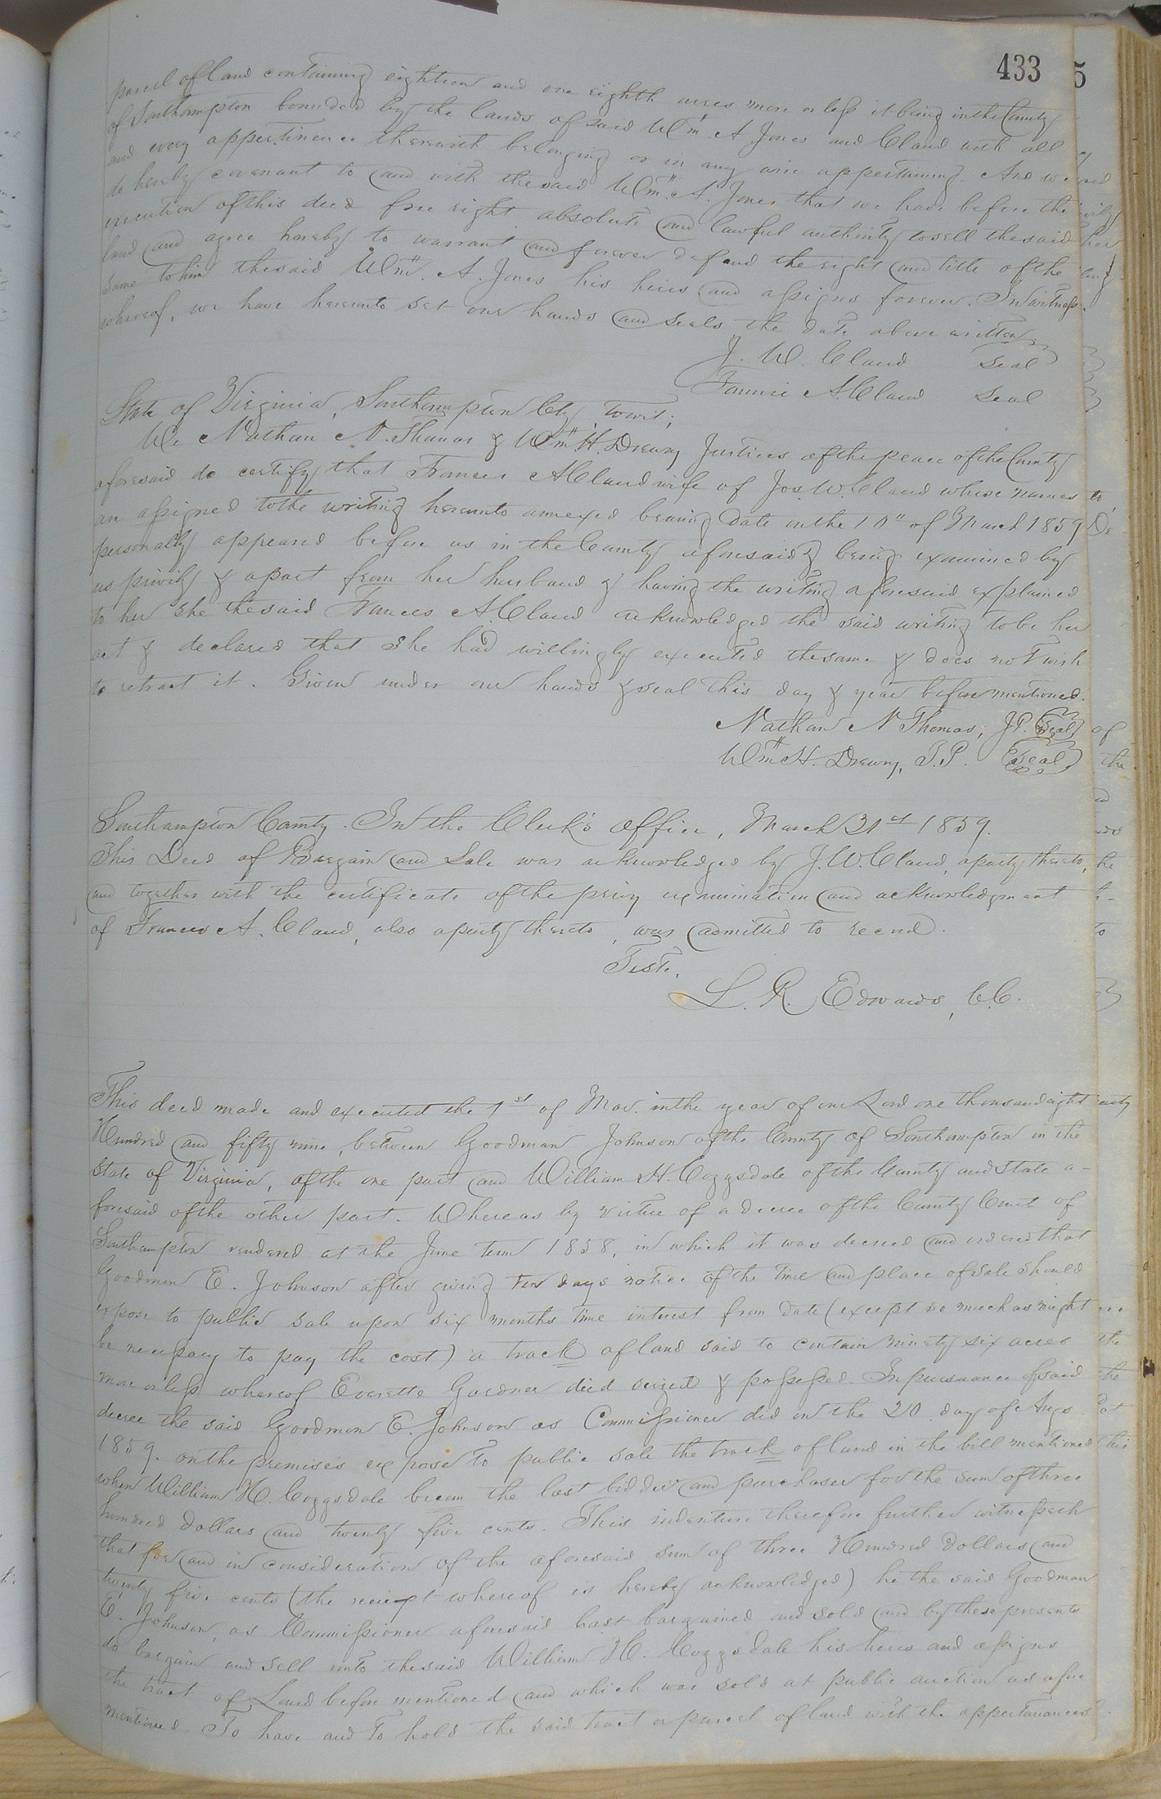 433
parcel of land containing eighteen and one eighth acres more or less it being in the County
of Southampton bounded by the lands of said Wm. A Jones and Claud with all
and every appertinence therewith belonging or in any wise appertaining. And we
do hereby covenant to and with the said Wm. A. Jones that we have before the
execution of this deed free right absolute and lawful authority to sell the said
land and agree hereby to warrant and forever defend the right and title of the
same to him the said Wm. A. Jones his heirs and assigns forever. In witness
whereof, we have hereunto set our hands and seals the date above written
J. W. Claud Seal
Fannie A Claud Seal
State of Virginia, Southampton Cty, to wit;
We Nathan N. Thomas & Wm. H. Drewry Justices of the peace of the County
aforesaid do certify that Frances A Claud wife of Jos. W. Claud whose names
are assigned to the writing hereunto annexed bearing date on the 10th of March 1859
personally appeared before us in the County aforesaid & being examined by
us privily & apart from her husband & having the writing aforesaid explained
to her she the said Frances A. Claud acknowledged the said writing to be her
act & declared that she had willingly executed the same & does not wish
to retract it. Given under our hands & seal this day & year before mentioned.
Nathan N Thomas, J.P. Seal
Wm. H. Drewry, J.P. Seal
Southampton County. In the Clerk's office, March 21st 1859.
This Deed of Bargain and Sale was acknowledged by J. W. Claud, a party thereto,
and together with the certificate of the privy examination and acknowledgment
of Frances A. Claud, also a party thereto, was admitted to record.
Teste,
L. R. Edwards, C.C.
This deed made and executed the 1st of Mar. in the year of our Lord one thousand eight
Hundred and fifty nine, between Goodman Johnson of the County of Southampton in the
State of Virginia, of the one part and William H. Coggsdale of the County and State a-
foresaid of the other part. Whereas by virtue of a decree of the County Court of
Southampton rendered at the June term 1858, in which it was decreed and ordered that
Goodman E. Johnson after giving ten days notice of the time and place of sale should
expose to public sale upon six months time interest from date (except so much as might
be necessary to pay the cost) a track of land said to contain ninety six acres
more or less whereof Everette Gardner died seized & possessed. In pursuance of said
decree the said Goodman E. Johnson as Commissioner did on the 20 day of Augs
1859. on the premises expose to public sale the track of land in the bill mentioned
when William H. Coggsdale became the last bidder and purchaser for the sum of three
hundred dollars and twenty five cents. This indenture therefore further witnesseth
that for and in consideration of the aforesaid sum of three Hundred Dollars and
twenty five cents (the receipt whereof is hereby acknowledged) he the said Goodman
E. Johnson, as Commissioner aforesaid hast bargained and sold and by these presents
do bargain and sell unto the said William H. Coggsdale his heirs and assigns
the tract of Land before mentioned and which was sold at public auction as afore
mentioned. To have and to hold the said tract or parcel of land with the appertanances